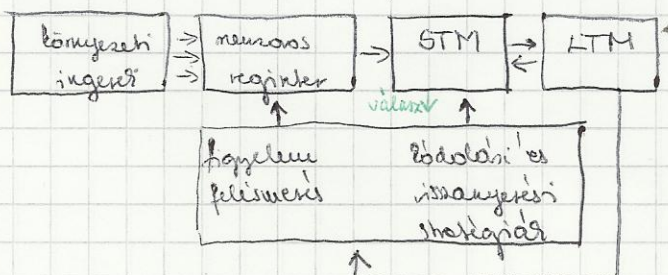 környezeti
ingerek
szenzoros
regiszter
STM
LTM
válasz
figyelem
felismerés
kódolási és
visszanyerési
stratégiák